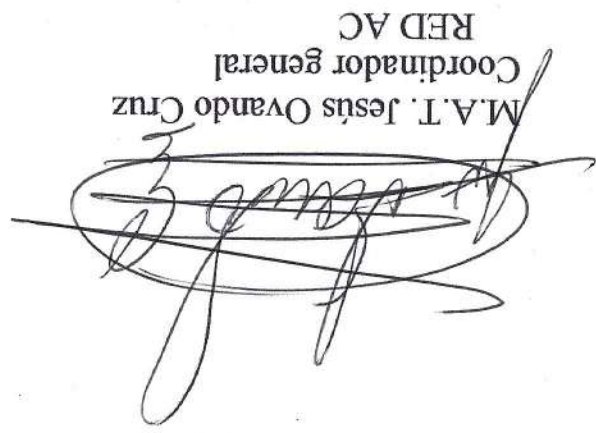 M.A.T. Jesús Ovando Cruz
Coordinador general
RED AC